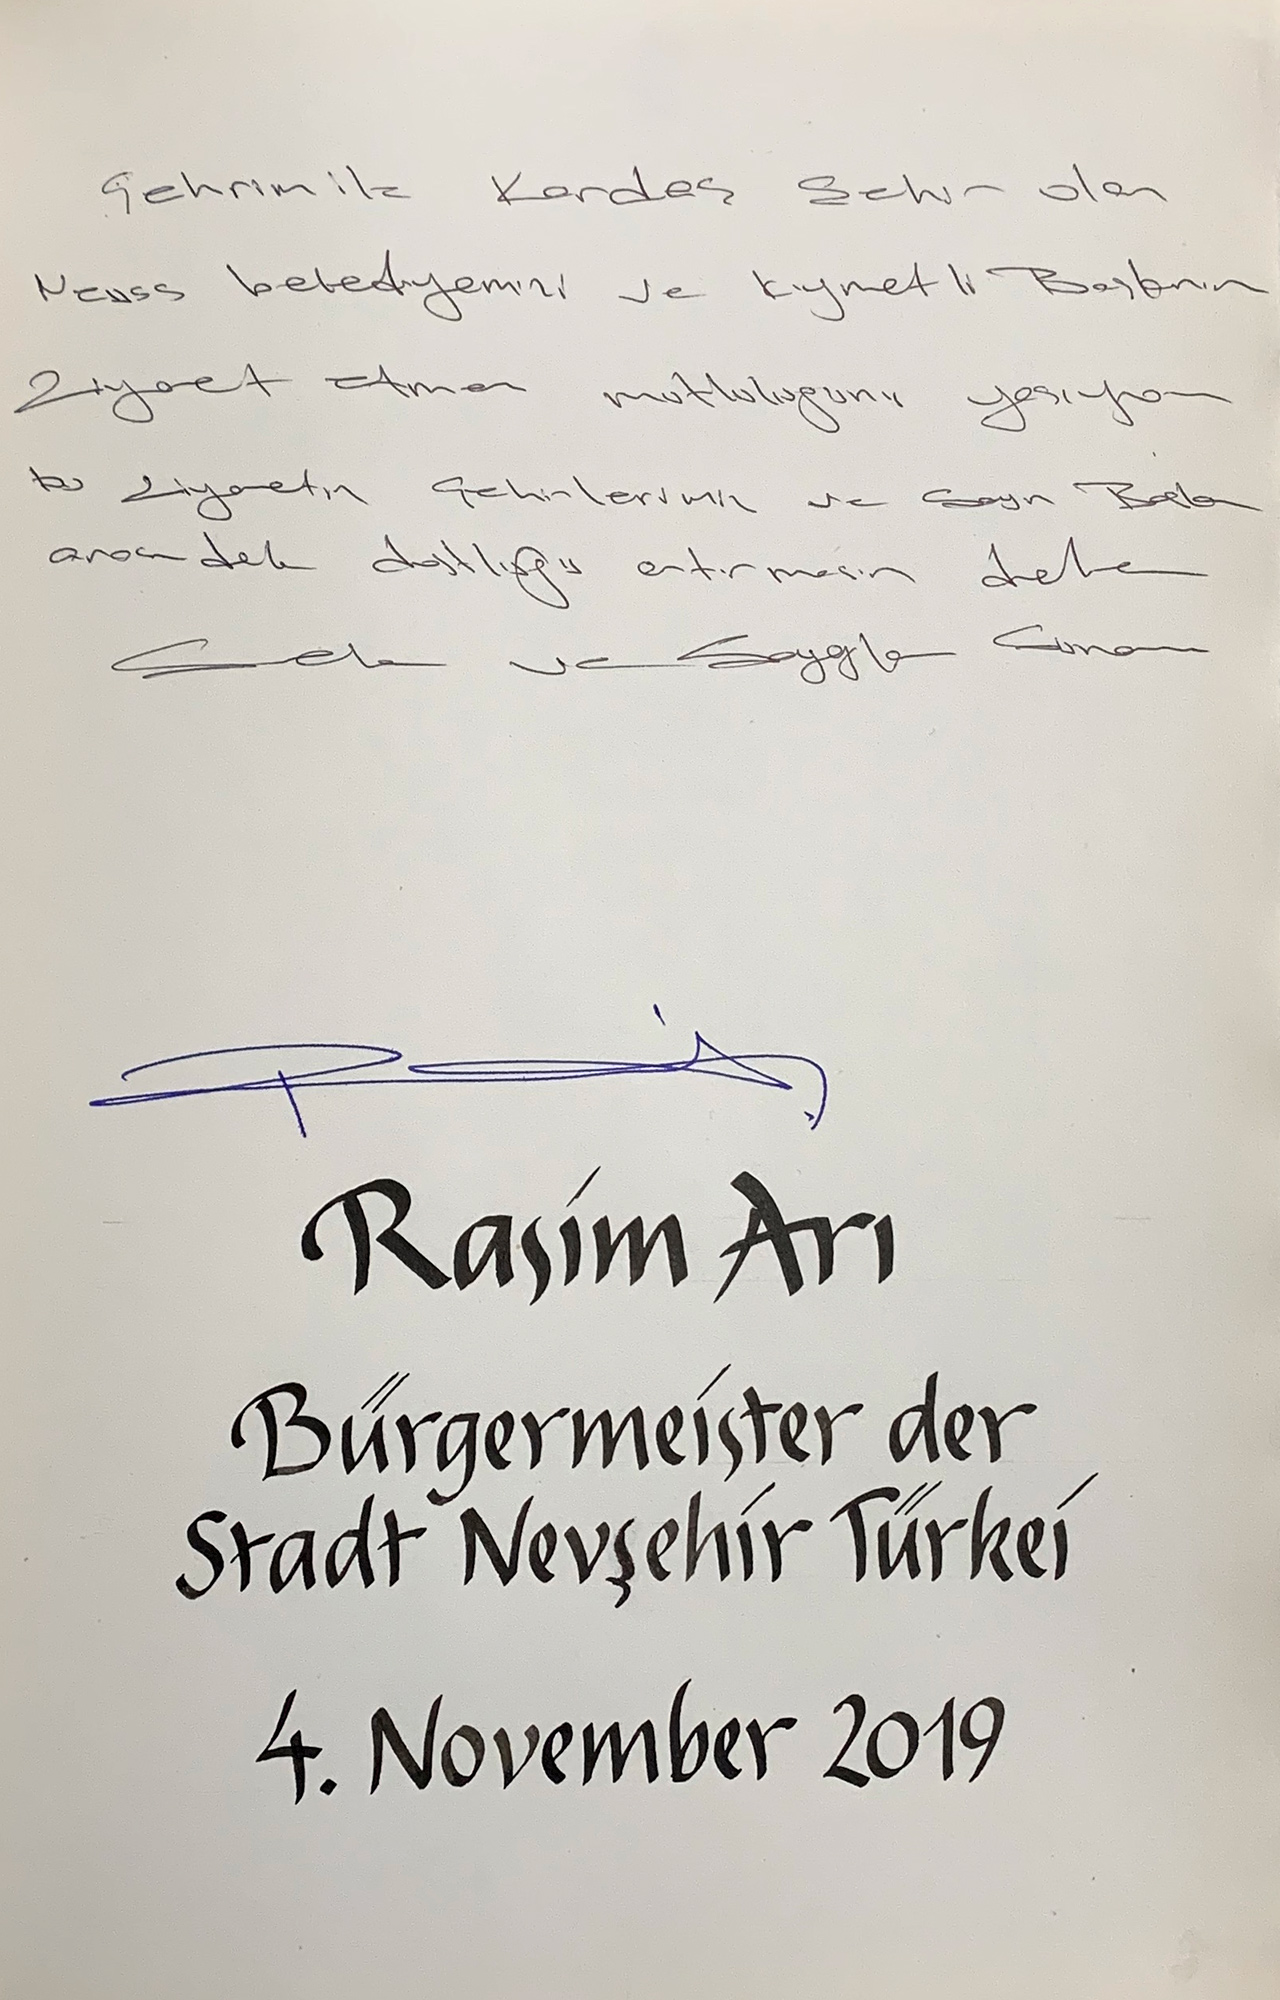 Şehrimile Kardeş Şehir olan
Neuss belediyemizi ve kıymetli Başkanın
Ziyaret etmen mutluluğunu yaşıyorum
bu ziyaretin Şehirlerimiz ve Sayın Başkan
arasındaki dostluğu artırmasın diler
ve Saygılar Sunarım
Rasim Arı
Bürgermeister der
Stadt Nevşehir Türkei
4. November 2019